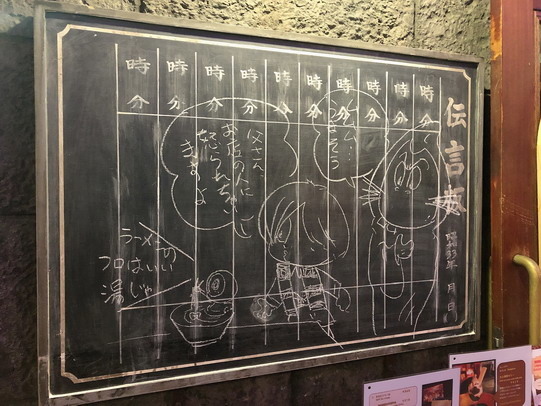 伝言板
昭和33年 月 日
時 分
時 分
時 分
時 分
時 分
時 分
時 分
時 分
時 分
時 分
父さん
お店の人に
怒られちゃい
ますよ
ラーメンの
フロはいい
湯じゃ